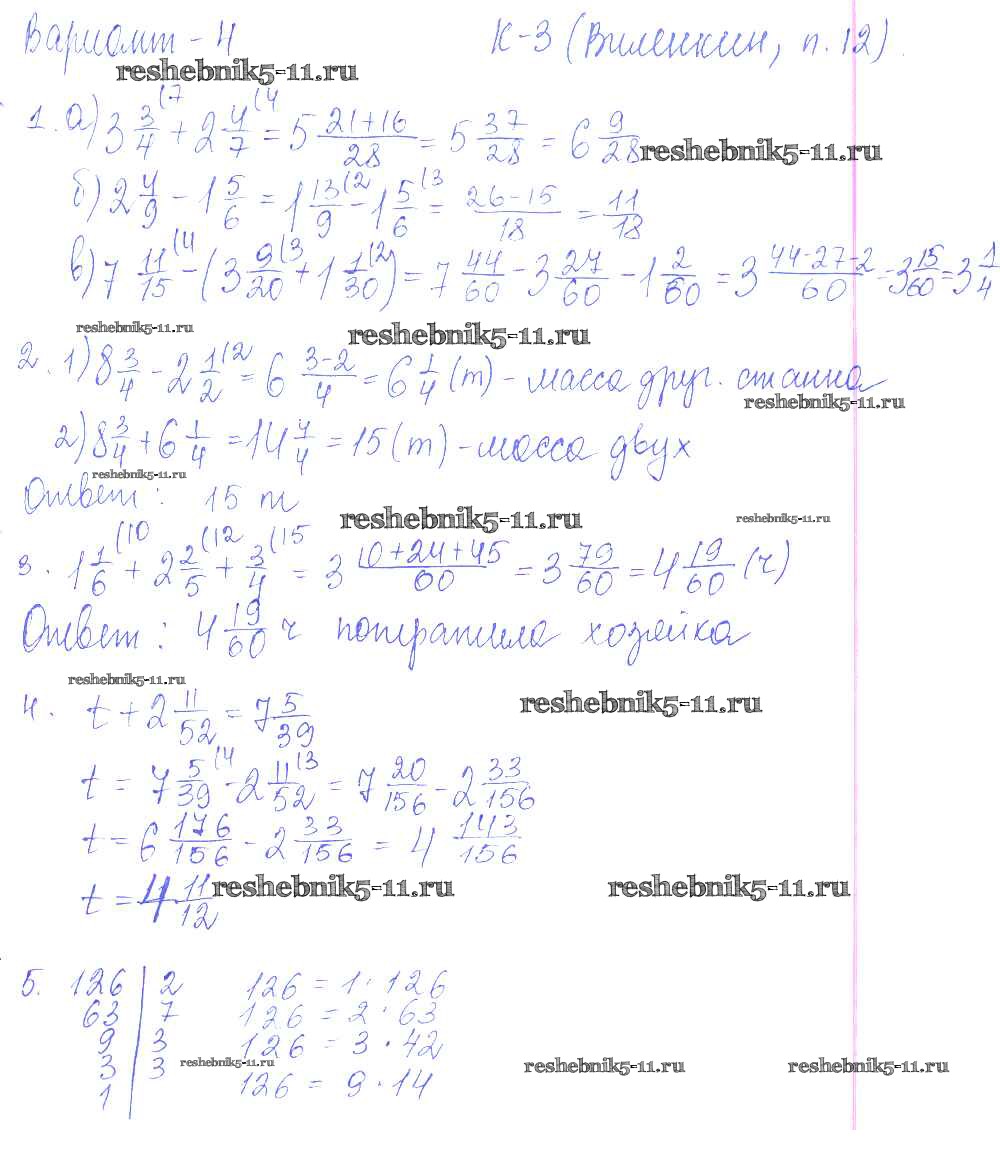 Вариант - 4 К-3 (Виленкин, п. 12)
reshebnik5-11.ru
1. а) 3 3/4 (7 + 2 4/7 (4 = 5 (21+16)/28 = 5 37/28 = 6 9/28
reshebnik5-11.ru
б) 2 4/9 - 1 5/6 = 1 13/9 (2 - 1 5/6 (3 = (26-15)/18 = 11/18
в) 7 11/15 (4 - (3 9/20 (3 + 1 1/30 (2) = 7 44/60 - 3 27/60 - 1 2/60 = 3 (44-27-2)/60 = 3 15/60 = 3 1/4
reshebnik5-11.ru reshebnik5-11.ru
2. 1) 8 3/4 - 2 1/2 (2 = 6 (3-2)/4 = 6 1/4 (т) - масса друг. станка
reshebnik5-11.ru
2) 8 3/4 + 6 1/4 = 14 4/4 = 15 (т) - масса двух
reshebnik5-11.ru
Ответ: 15 т
reshebnik5-11.ru reshebnik5-11.ru
3. 1 1/6 (10 + 2 2/5 (12 + 3/4 (15 = 3 (10+24+45)/60 = 3 79/60 = 4 19/60 (ч)
Ответ: 4 19/60 ч потратила хозяйка
reshebnik5-11.ru reshebnik5-11.ru
4. t + 2 11/52 = 7 5/39
t = 7 5/39 (4 - 2 11/52 (3 = 7 20/156 - 2 33/156
t = 6 176/156 - 2 33/156 = 4 143/156
t = 4 11/12
reshebnik5-11.ru reshebnik5-11.ru
5. 126 | 2 126 = 1 · 126
63 | 7 126 = 2 · 63
9 | 3 126 = 3 · 42
3 | 3 reshebnik5-11.ru reshebnik5-11.ru reshebnik5-11.ru
1 | 126 = 9 · 14